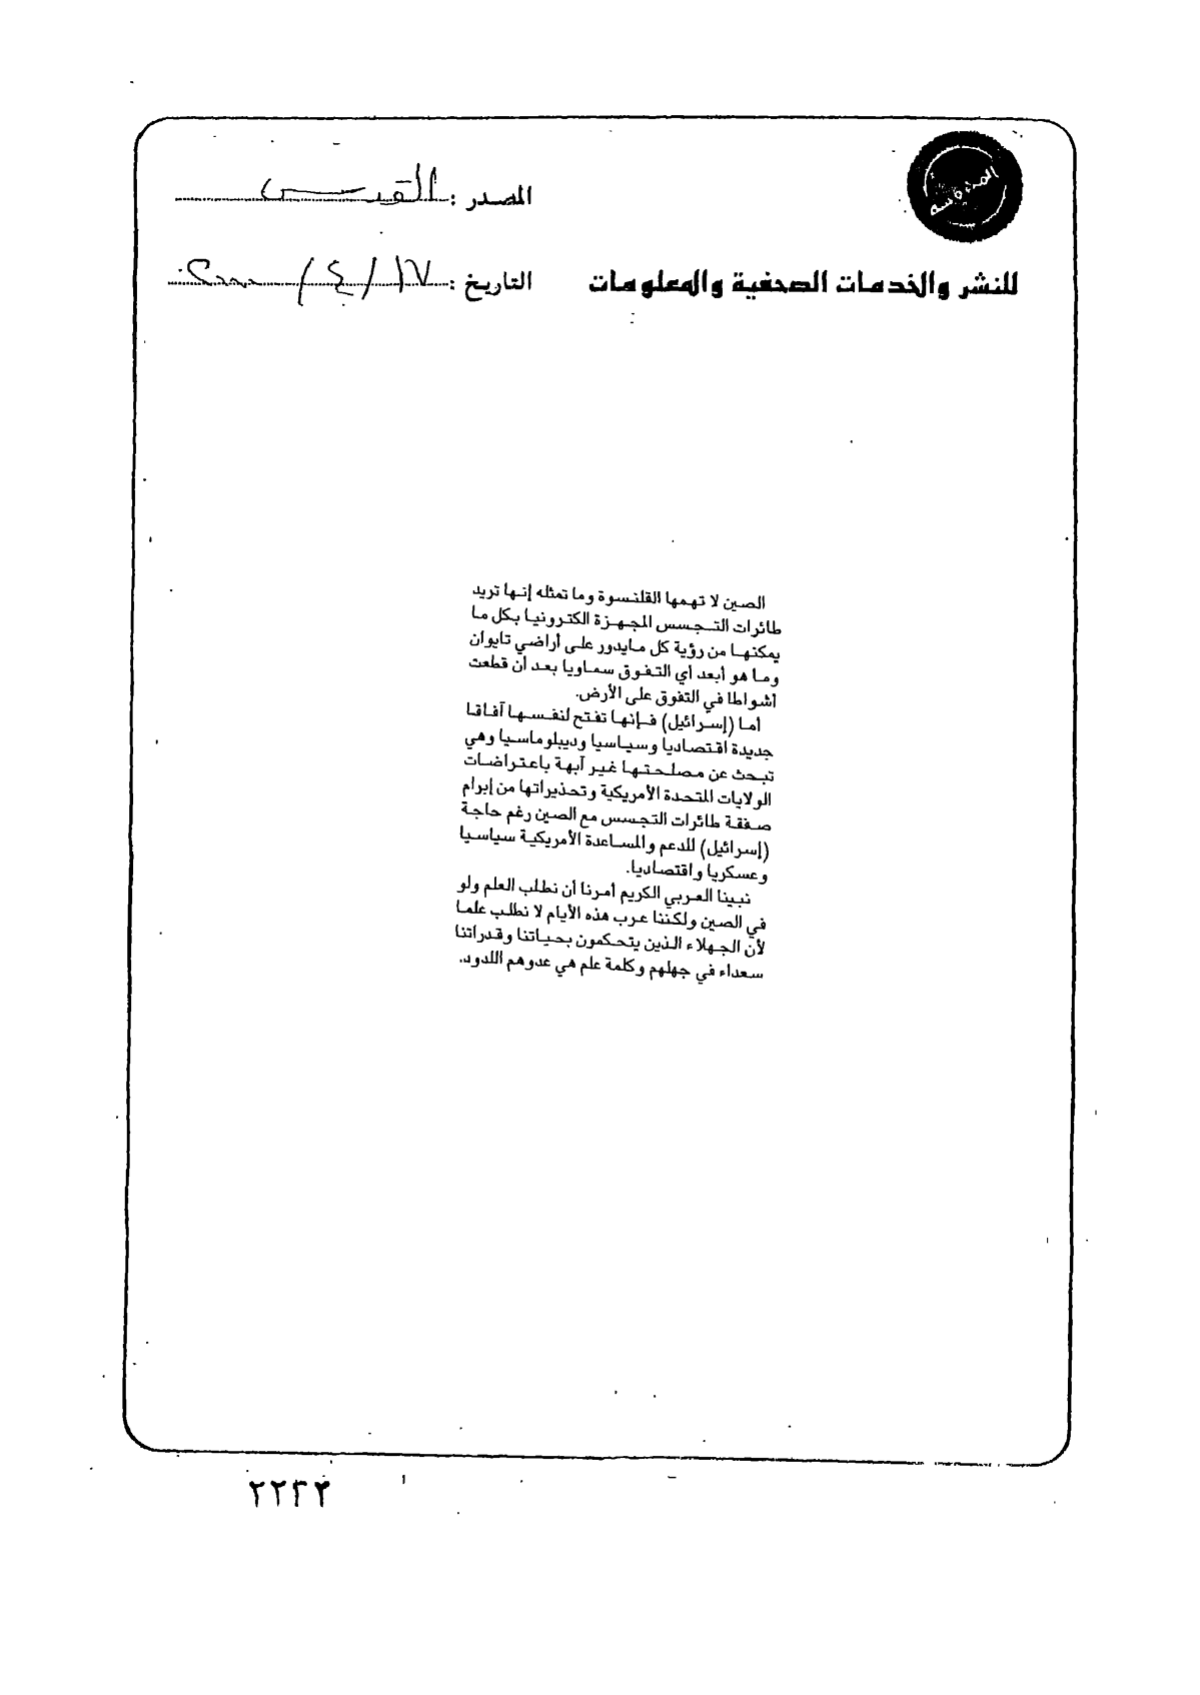 المصدر : القدس
للنشر والخدمات الصحفية والمعلومات
التاريخ : ١٧ / ٤ / ٢٠٠٠
الصين لا تهمها القلنسوة وما تمثله إنها تريد
طائرات التجسس المجهزة الكترونيا بكل ما
يمكنها من رؤية كل مايدور على أراضي تايوان
وما هو أبعد أي التفوق سماويا بعد أن قطعت
أشواطا في التفوق على الأرض.
أما (إسرائيل) فإنها تفتح لنفسها آفاقا
جديدة اقتصاديا وسياسيا وديبلوماسيا وهي
تبحث عن مصلحتها غير آبهة باعتراضات
الولايات المتحدة الأمريكية وتحذيراتها من إبرام
صفقة طائرات التجسس مع الصين رغم حاجة
(إسرائيل) للدعم والمساعدة الأمريكية سياسيا
وعسكريا واقتصاديا.
نبينا العربي الكريم أمرنا أن نطلب العلم ولو
في الصين ولكننا عرب هذه الأيام لا نطلب علما
لأن الجهلاء الذين يتحكمون بحياتنا وقدراتنا
سعداء في جهلهم وكلمة علم هي عدوهم اللدود.